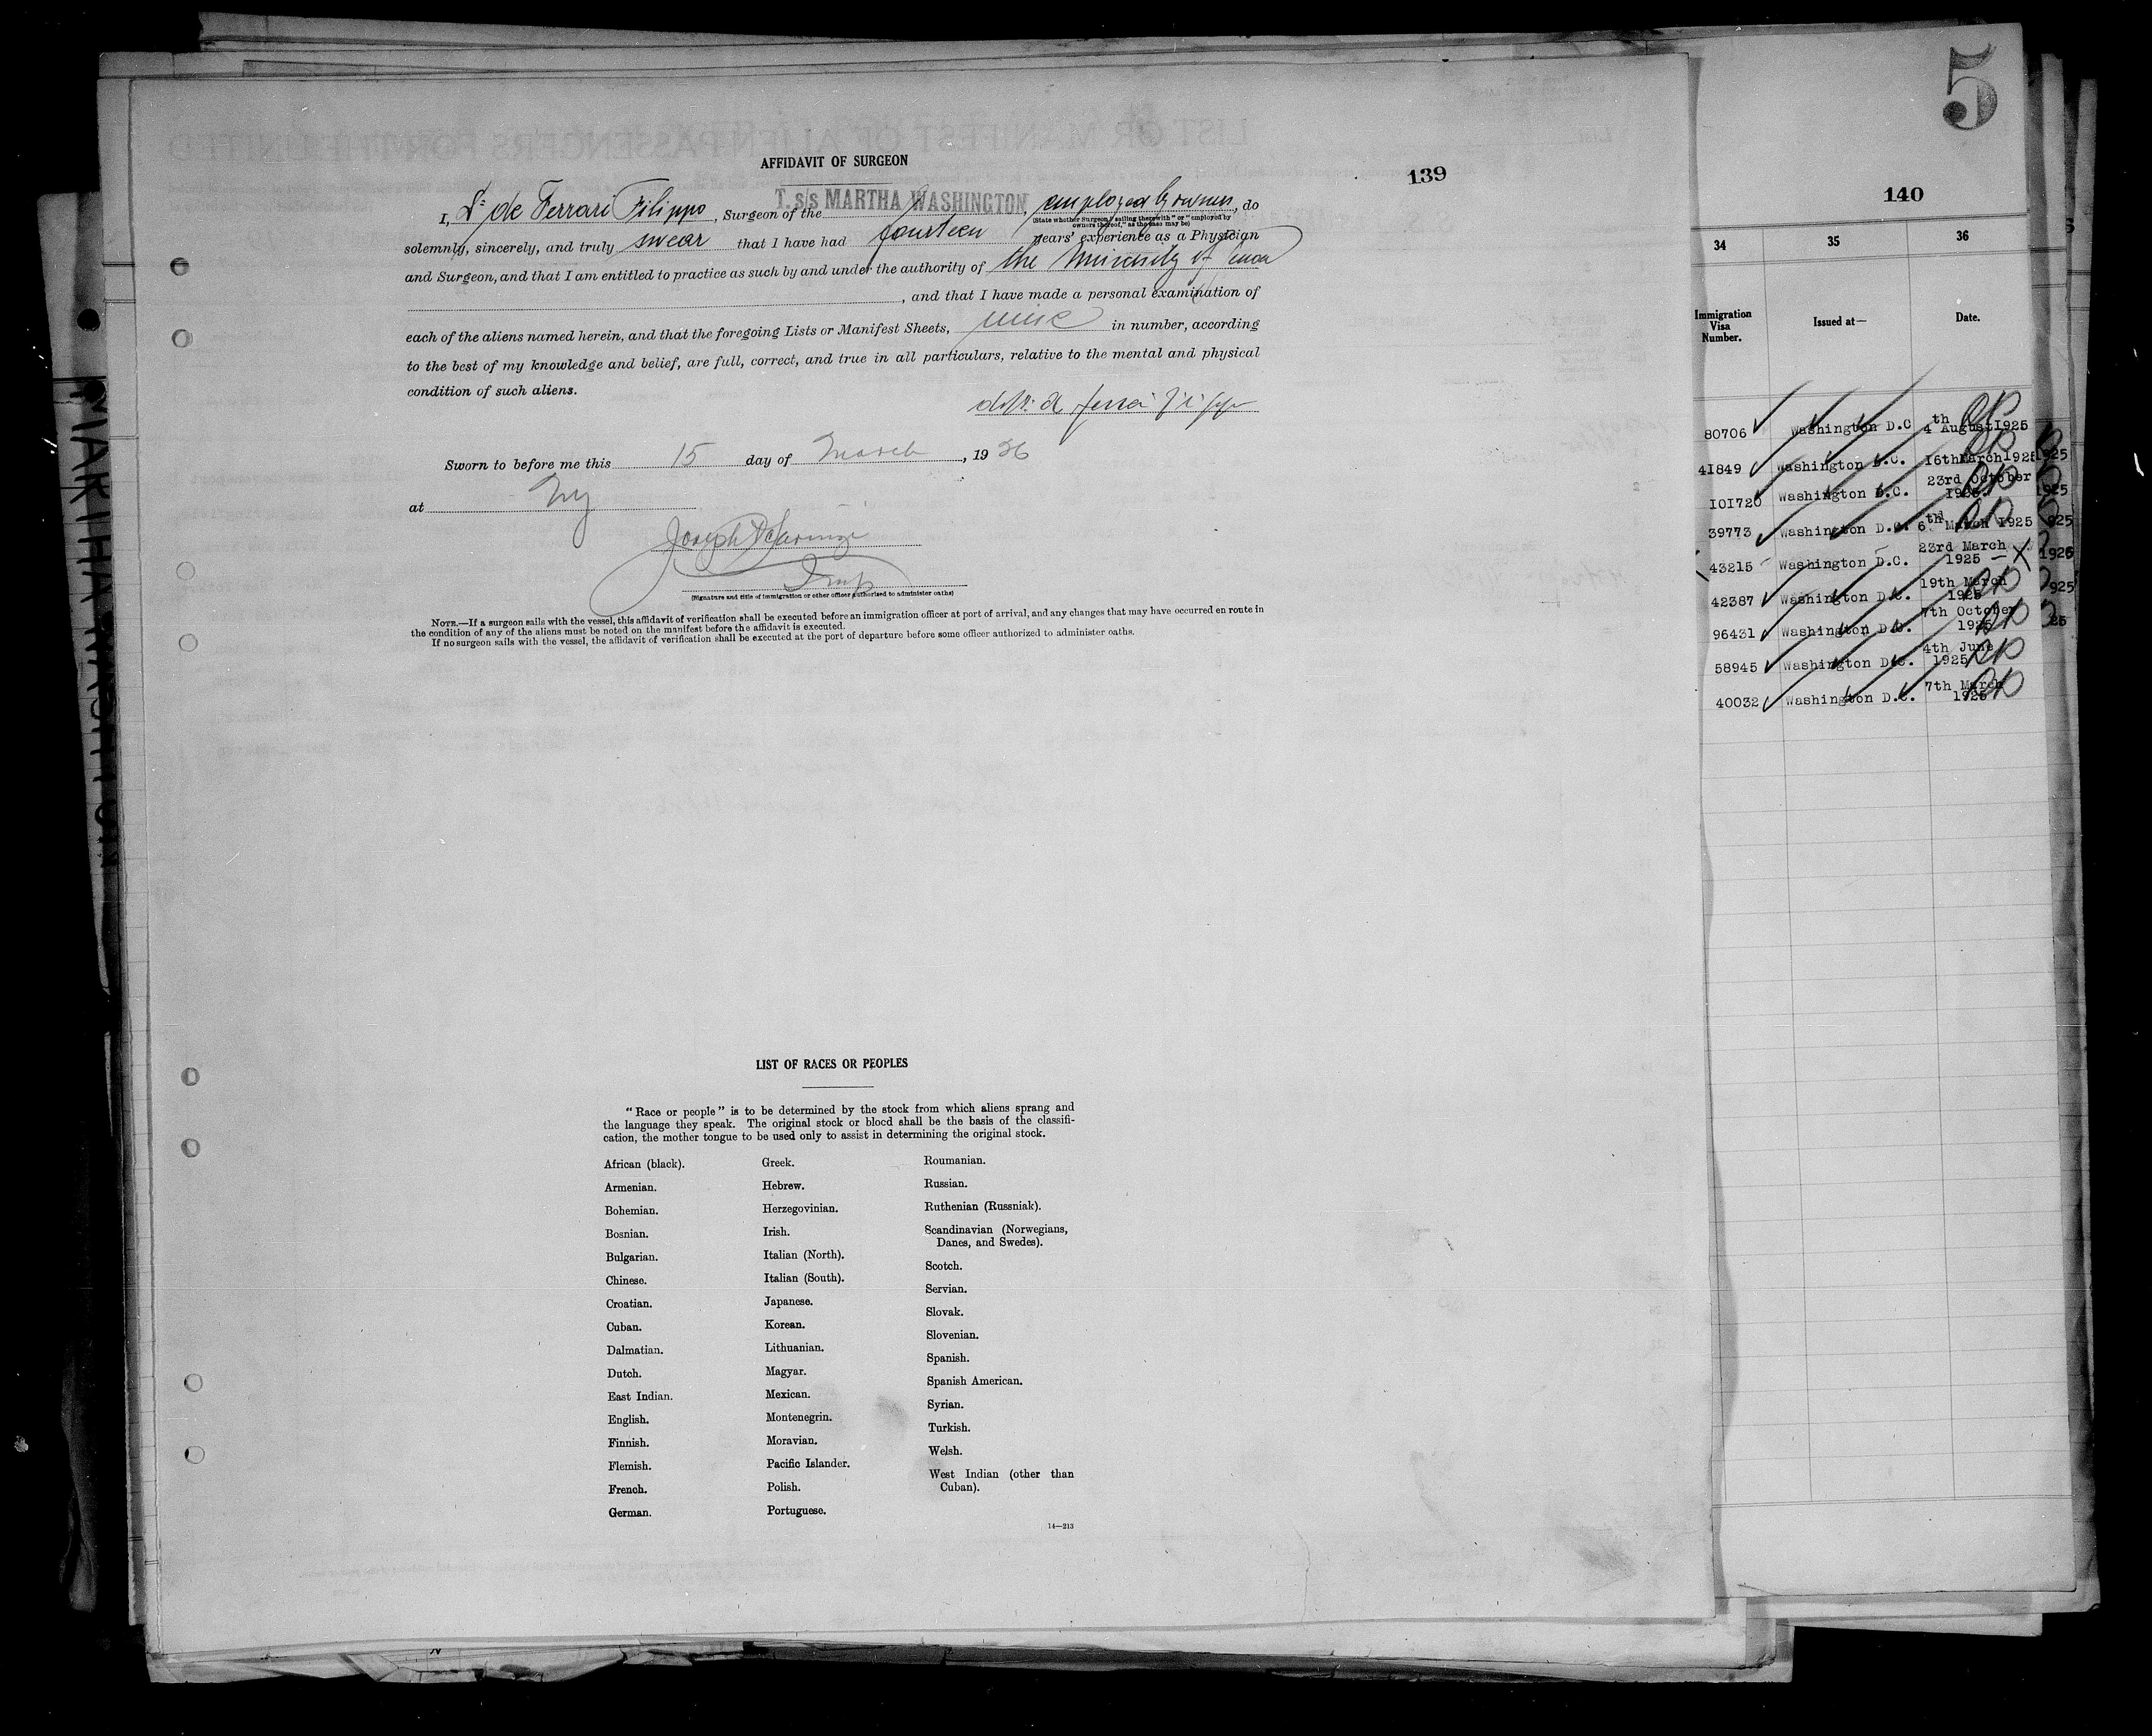 5
139
140
AFFIDAVIT OF SURGEON
I, Dr de Ferrari Filippo, Surgeon of the T. s/s MARTHA WASHINGTON, employed by owners, do
(State whether Surgeon "sailing therewith" or "employed by
owners thereof," as the case may be)
solemnly, sincerely, and truly swear that I have had fourteen years' experience as a Physician
and Surgeon, and that I am entitled to practice as such by and under the authority of the University of
, and that I have made a personal examination of
each of the aliens named herein, and that the foregoing Lists or Manifest Sheets, nine in number, according
to the best of my knowledge and belief, are full, correct, and true in all particulars, relative to the mental and physical
condition of such aliens.
Sworn to before me this 15 day of March, 1926
at NY
Joseph
Insp
(Signature and title of immigration or other officer authorized to administer oaths)
NOTE.—If a surgeon sails with the vessel, this affidavit of verification shall be executed before an immigration officer at port of arrival, and any changes that may have occurred en route in
the condition of any of the aliens must be noted on the manifest before the affidavit is executed.
If no surgeon sails with the vessel, the affidavit of verification shall be executed at the port of departure before some officer authorized to administer oaths.
LIST OF RACES OR PEOPLES
"Race or people" is to be determined by the stock from which aliens sprang and
the language they speak. The original stock or blood shall be the basis of the classifi-
cation, the mother tongue to be used only to assist in determining the original stock.
African (black).
Armenian.
Bohemian.
Bosnian.
Bulgarian.
Chinese.
Croatian.
Cuban.
Dalmatian.
Dutch.
East Indian.
English.
Finnish.
Flemish.
French.
German.
Greek.
Hebrew.
Herzegovinian.
Irish.
Italian (North).
Italian (South).
Japanese.
Korean.
Lithuanian.
Magyar.
Mexican.
Montenegrin.
Moravian.
Pacific Islander.
Polish.
Portuguese.
Roumanian.
Russian.
Ruthenian (Russniak).
Scandinavian (Norwegians,
Danes, and Swedes).
Scotch.
Servian.
Slovak.
Slovenian.
Spanish.
Spanish American.
Syrian.
Turkish.
Welsh.
West Indian (other than
Cuban).
14—213
34 35 36
Immigration
Visa
Number.
Issued at—
Date.
80706 Washington D.C 4th August 1925
41849 Washington D.C. 16th March 1925
101720 Washington D.C. 23rd October 1925
39773 Washington D.C. 6th March 1925
43215 Washington D.C. 23rd March 1925
42387 Washington D.C. 19th March 1925
96431 Washington D.C. 7th October 1925
58945 Washington D.C. 4th June 1925
40032 Washington D.C. 7th March 1925
MARTHA WASHINGTON